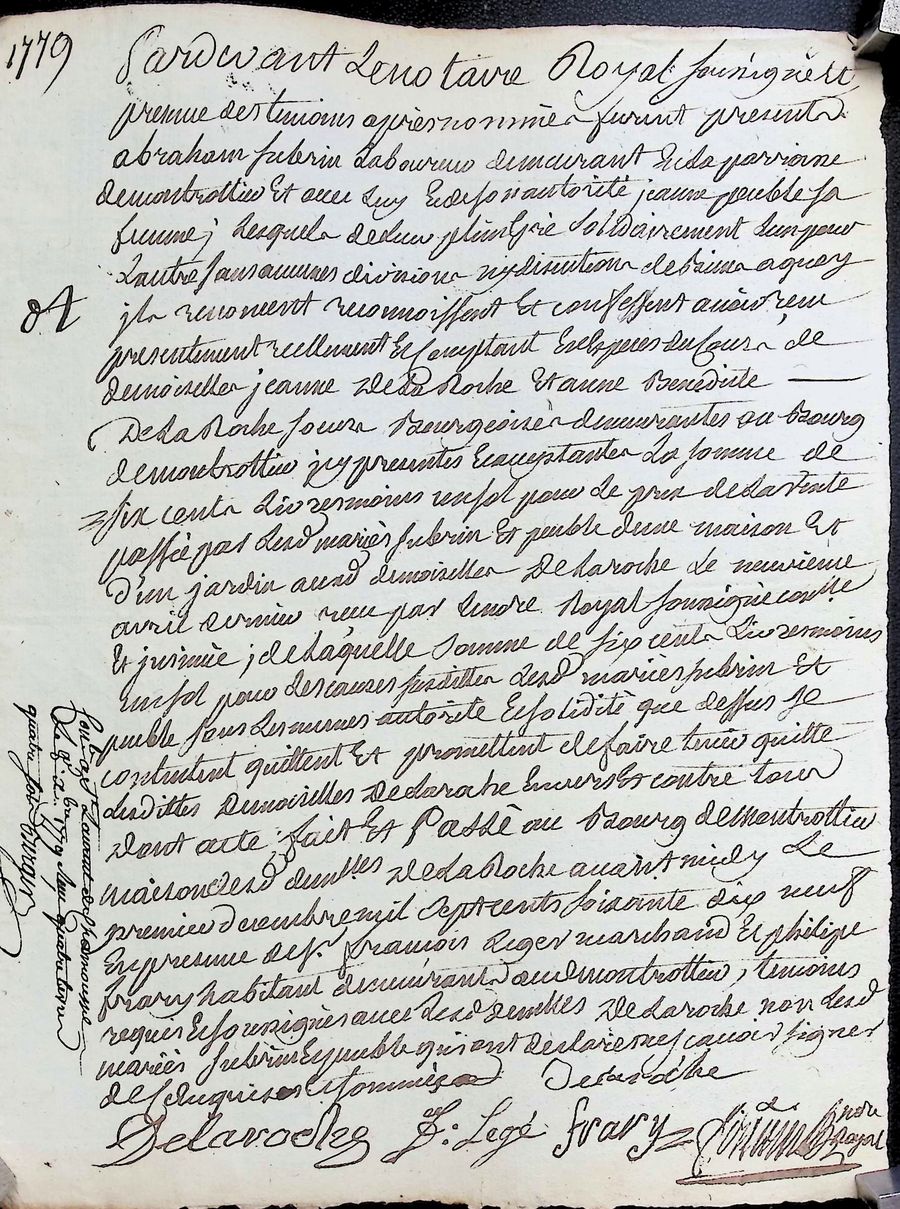 1779
Pardevant Le notaire Royal soussigné et
presence des temoins apres nommés furent presents
abraham laboureur demeurant En la parroisse
de montrottier Et avec luy Et de son autorité jeanne peuble sa
femme ; Lesquels de Leur plein gré solidairement Lun pour
Lautre sans aucunes division ny discution de biens a quoy
jls renoncent reconnoissent Et confessent avoir reçu
presentement reellement Et Comptant En Especes du Cours de
demoiselles jeanne De La Roche Et anne Benedicte
De La Roche soeurs Bourgeoises demeurantes au Bourg
de montrottier jcy presentes Et acceptantes La somme de
six cents Livres moins un sol pour Le prix de La Vente
passée par Lesd mariés Et peuble dune maison Et
D'un jardin auxd demoiselles De Laroche Le neuvieme
avril dernier recu par Le no.re Royal soussigné
Et jnsinuée ; de Laquelle somme de six cents Livres moins
un sol pour Les causes susdittes Lesd mariés Et
peuble sous Les memes autorité Et solidité que dessus se
contentent quittent Et promettent de faire tenir quitte
Lesdittes Demoiselles De Laroche Envers Et contre tous
Dont acte ; fait Et Passé au Bourg de Montrottier
maison desd demlles De La Roche avant midy Le
premier decembre mil sept cents soixante dix neuf
En presence de sr. francois Leger marchand Et philipe
frary habitant demeurants aud montrottier, temoins
requis Et soussignés avec Lesd demlles De Laroche non Lesd
mariés Et peuble qui ont declaré ne scavoir signer
de ce Enquis Et sommés Delaroche
Delaroche f: Legé frary
no.re Royal
84
quatre sols